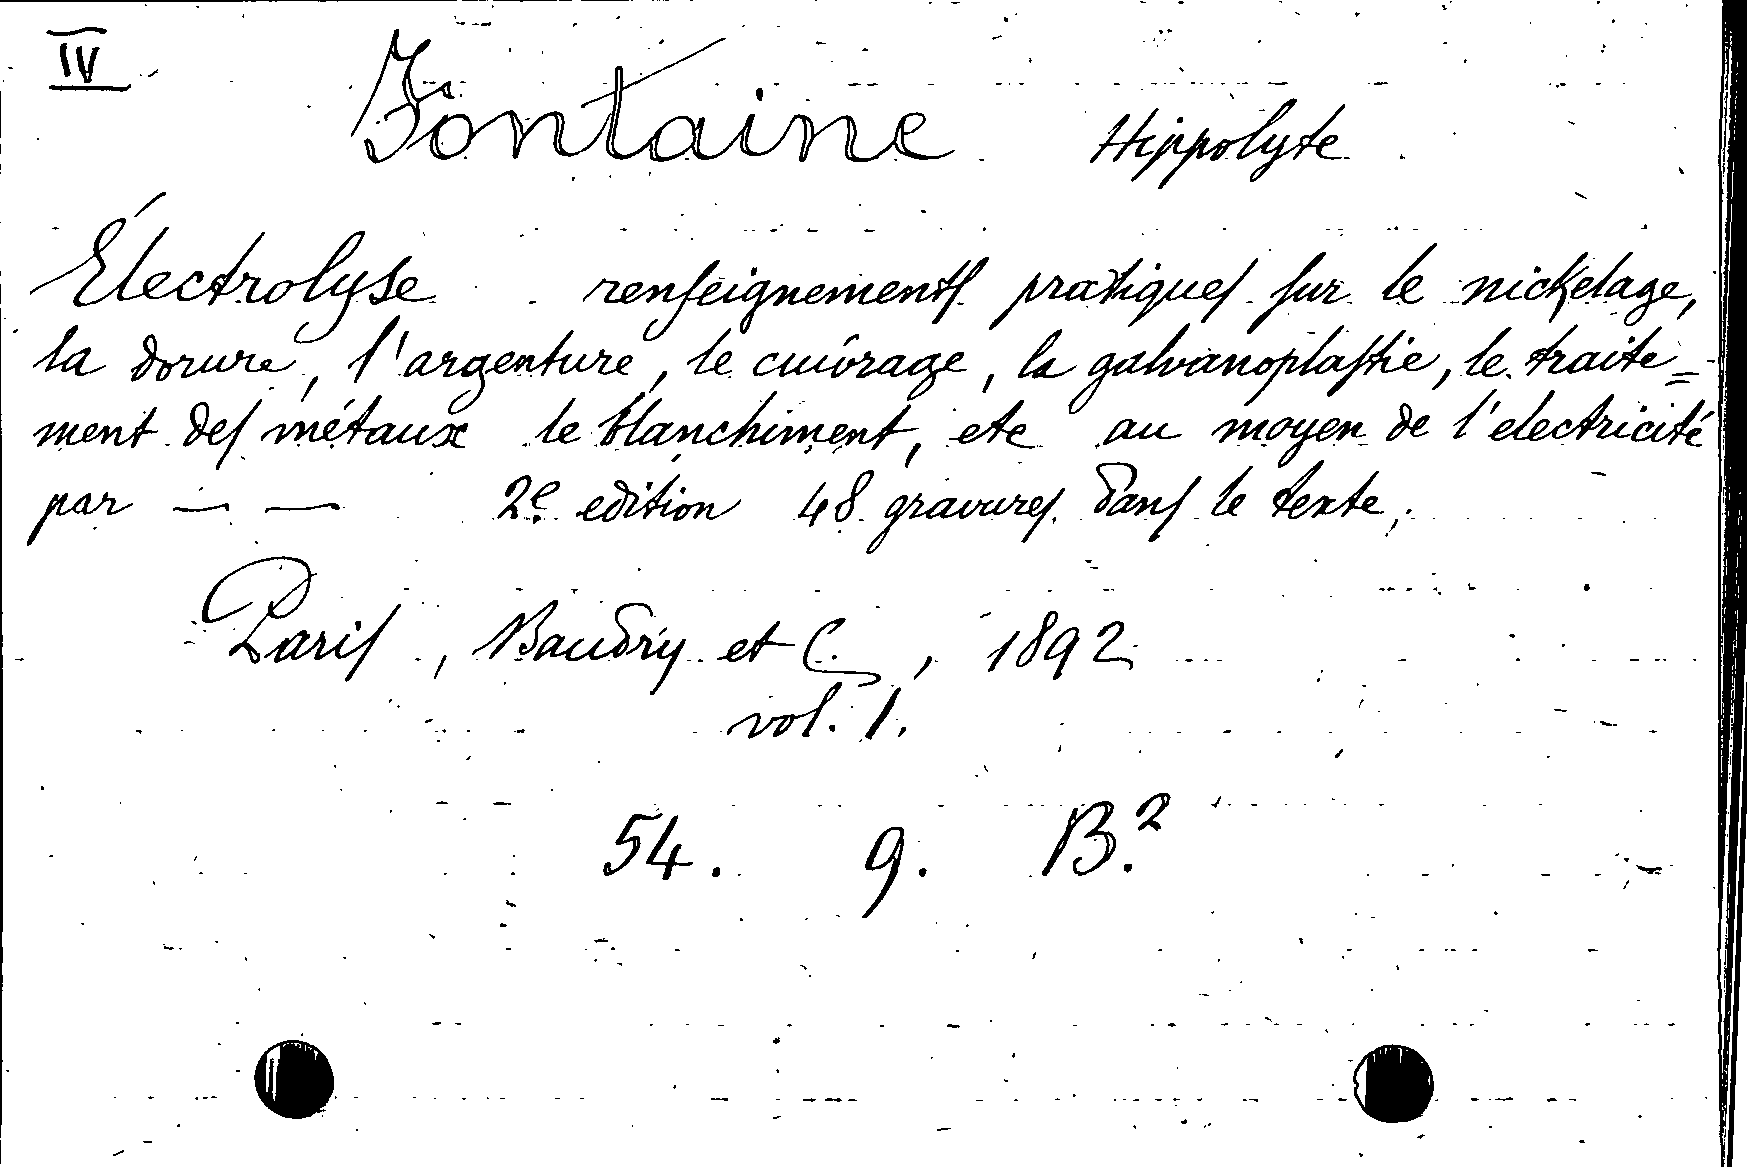 IV
Fontaine Hippolyte
Électrolyse renseignements pratiques sur le nickelage,
la dorure, l'argenture, le cuivrage, la galvanoplastie, le traite=
ment des métaux le blanchiment, etc au moyen de l'electricité
par — — 2e edition 48 gravures dans le texte,
Paris, Baudry et C., 1892
vol. 1.
54. 9. B.2